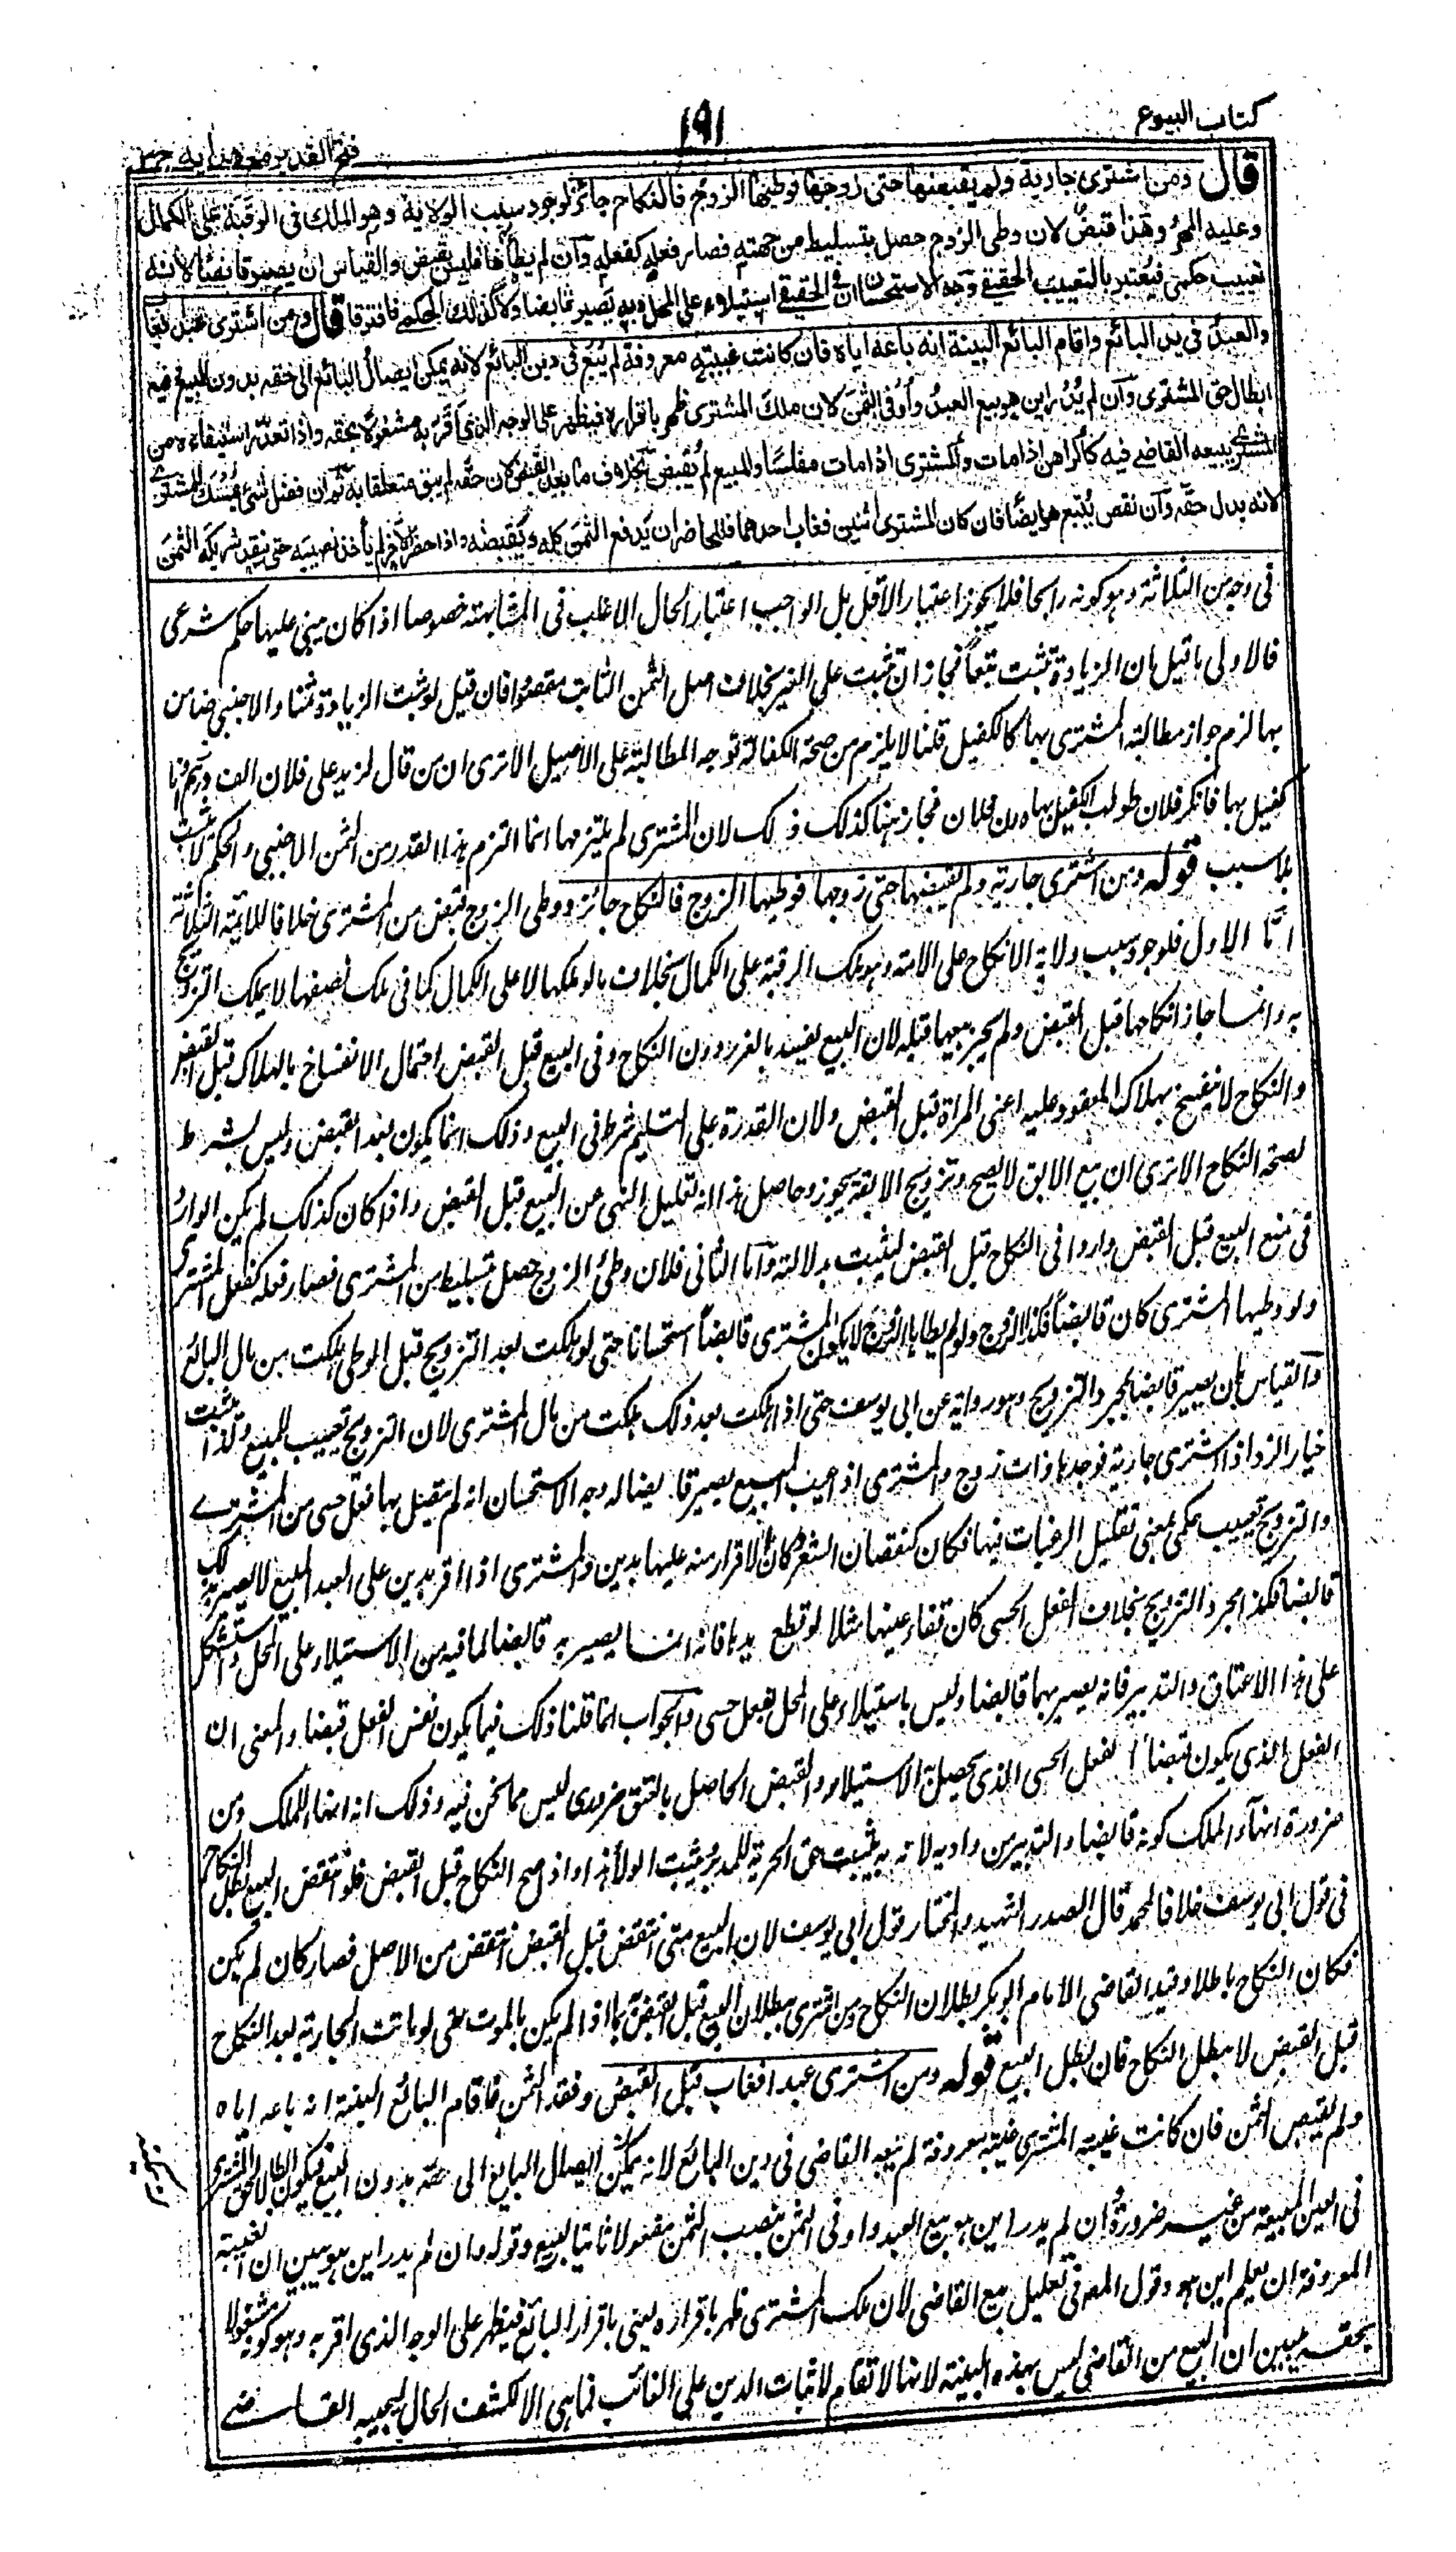 كتاب البيوع
١٩١
فتح القدير مع هدايه جلد
قال ومن اشترى جارية ولم يقبضها حتى زوجها فوطيها الزوج فالنكاح جائز لوجود سبب الولاية وهو الملك فى الرقبة على الكمال
وعليه المهر وهذا قبض لان وطى الزوج حصل بتسليط من جهته فصار فعله كفعله وان لم يطأها فليس بقبض والقياس ان يصير قابضا لانه
تعييب حكمى فيعتبر بالتعييب الحقيقى وجه الاستحسان ان فى الحقيقى استيلاء على المحل وبه يصير قابضا ولا كذلك الحكمى فافترقا قال ومن اشترى عبدا فغاب
والعبد فى يد البائع واقام البائع البينة انه باعه اياه فان كانت غيبته معروفة لم يبع فى دين البائع لانه يمكن ايصال البائع الى حقه بدون البيع وفيه
ابطال حق المشترى وان لم يدر اين هو بيع العبد وأوفى الثمن لان ملك المشترى ظهر باقراره فيظهر على الوجه الذى اقر به مشغولا بحقه واذا تعذر استيفاءه من
المشترى يبيعه القاضى فيه كالراهن اذا مات والمشترى اذا مات مفلسا والمبيع لم يقبض بخلاف ما بعد القبض لان حقه لم يبق متعلقا به ثم ان فضل شئ يمسك للمشترى
لانه بدل حقه وان نقص يتبع هو ايضا فان كان المشترى اثنين فغاب احدهما فللحاضر ان يدفع الثمن كله ويقبضه واذا حضر الآخر لم يأخذ نصيبه حتى ينقد شريكه الثمن
فى وجه من الثلاثة وهو كونه رابحا فلا يجوز اعتبار الاقل بل الواجب اعتبار الحال الاغلب فى المشابهته خصوصا اذا كان يبنى عليها حكم شرعى
فالاولى ما قيل ان الزيادة تثبت تبعا فجاز ان تثبت على الغير بخلاف اصل الثمن الثابت مقصودا فان قيل لو ثبت الزيادة ثمنا والاجنبى ضامن
بها لزم جواز مطالبته المشترى بها كالكفيل قلنا لا يلزم من صحة الكفالة توجه المطالبة على الاصيل الا ترى ان من قال لزيد على فلان الف درهم وانا
كفيل بها فانكر فلان طولب الكفيل بها دون فلان فجاز هنا كذلك وذلك لان المشترى لم يلتزمها انما التزم هذا القدر من الثمن الاجنبى والحكم لا يثبت
بلا سبب قوله ومن اشترى جارية ولم يقبضها حتى زوجها فوطيها الزوج فالنكاح جائز ووطى الزوج قبض من المشترى خلافا للائمة الثلاثة
اما الاول فلوجود سبب ولاية الانكاح على الامة وهو ملك الرقبة على الكمال بخلاف ما لو ملكها لا على الكمال كما فى ملك نصفها لا يملك التزويج
به وانما جاز انكاحها قبل القبض ولم يجز بيعها قبله لان البيع يفسد بالغرر دون النكاح وفى البيع قبل القبض احتمال الانفساخ بالهلاك قبل القبض
والنكاح لا ينفسخ بهلاك المعقود عليه اعنى المرأة قبل القبض ولان القدرة على التسليم شرط فى البيع وذلك انما يكون بعد القبض وليس بشرط
لصحة النكاح الا ترى ان بيع الابق لا يصح وتزويج الابقة يجوز وحاصل هذا انه تعليل النهى عن البيع قبل القبض واذا كان كذلك لم يكن الوارد
فى منع البيع قبل القبض واردا فى النكاح قبل القبض ليثبت بدلالته واما الثانى فلان وطئ الزوج حصل بتسليط من المشترى فصار فعله كفعل المشترى
ولو وطيها المشترى كان قابضا فكذا الزوج ولو لم يطاها الزوج لا يكون المشترى قابضا استحسانا حتى لو هلكت بعد التزويج قبل الوطى هلكت من مال البائع
والقياس ان يصير قابضا بمجرد التزويج وهو رواية عن ابى يوسف حتى اذا هلكت بعد ذلك هلكت من مال المشترى لان التزويج تعييب للمبيع ولذا يثبت
خيار الرد اذا اشترى جارية فوجدها ذات زوج والمشترى اذا عيب المبيع يصير قابضا له وجه الاستحسان انه لم يتصل بها فعل حسى من المشترى
والتزويج تعييب حكمى بمعنى تقليل الرغبات فيها فكان كنقصان السعر وكالاقرار منه عليها بدين والمشترى اذا اقر بدين على العبد المبيع لا يصير بذلك
قابضا فكذا مجرد التزويج بخلاف الفعل الحسى كان فقاء عينها مثلا او قطع يدها فانه انما يصير به قابضا لما فيه من الاستيلاء على المحل واستشكل
على هذا الاعتاق والتدبير فانه يصير بهما قابضا وليس باستيلاء على المحل بفعل حسى والجواب انما قلنا ذلك فيما يكون نفس الفعل قبضا والمعنى ان
الفعل الذى يكون قبضا الفعل الحسى الذى يحصل به الاستيلاء والقبض الحاصل بالعتق ضرورى ليس مما نحن فيه وذلك انه انهاء للملك ومن
ضرورة انهاء الملك كونه قابضا والتدبير من واديه لانه به يثبت حق الحرية للمدبر ويثبت الولاء هذا واذا صح النكاح قبل القبض فلو انتقض البيع بطل النكاح
فى قول ابى يوسف خلافا لمحمد قال الصدر الشهيد والمختار قول ابى يوسف لان البيع متى انتقض قبل القبض انتقض من الاصل فصار كان لم يكن
فكان النكاح باطلا وقيد القاضى الامام ابو بكر بطلان النكاح ببطلان البيع قبل القبض بما اذا لم يكن بالموت حتى لو ماتت الجارية بعد النكاح
قبل القبض لا يبطل النكاح فان بطل البيع قوله ومن اشترى عبدا فغاب قبل القبض ونقد الثمن فاقام البائع البينة انه باعه اياه
ولم يقبض الثمن فان كانت غيبته المشترى غيبته معروفة لم يبعه القاضى فى دين البائع لانه يمكن ايصال البائع الى حقه بدون البيع فيكون ابطالا لحق المشترى
فى العين المبيعة من غير ضرورة وان لم يدر اين هو بيع العبد واوفى الثمن بنصب الثمن مفعولا ثانيا لبيع وقوله وان لم يدر اين هو يبين ان الغيبة
المعروفة ان يعلم اين هو وقول المص فى تعليل بيع القاضى لان ملك المشترى ظهر باقراره يعنى باقرار البائع فيظهر على الوجه الذى اقر به وهو كونه مشغولا
بحقه يبين ان البيع من القاضى ليس بهذه البينة لانها لا تقام لاثبات الدين على الغائب فما هى الا لكشف الحال ليجيبه القاضى